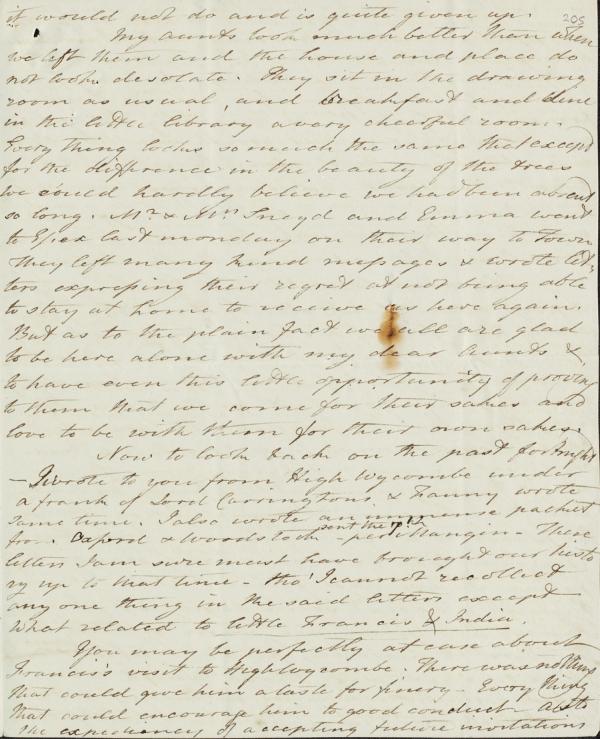 205
it would not do and is quite given up.
My aunts look much better than when
we left them and the house and place do
not look desolate. They sit in the drawing
room as usual, and breakfast and dine
in the little library a very cheerful room.
Every thing looks so much the same that except
for the difference in the beauty of the trees
we could hardly believe we had been absent
so long. Mr. & Mrs. Sneyd and Emma went
to Essex last monday on their way to Town
They left many kind messages & wrote let-
ters expressing their regret at not being able
to stay at home to receive us here again.
But as to the plain fact we all are glad
to be here alone with my dear Aunts &
to have even this little opportunity of proving
to them that we come for their sakes and
love to be with them for their own sakes.
Now to look back on the past fortnight
- I wrote to you from High Wycombe under
a frank of Lord Carringtons & Fanny wrote
same time. I also wrote an immense packet
from Oxford & Woodstock - sent the per Mangin - These
letters I am sure must have brought our histo
ry up to that time - tho' I cannot recollect
any one thing in the said letters except
what related to little Francis & India.
You may be perfectly at ease about
Francis's visit to High Wycombe. There was nothing
that could give him a taste for finery - Every thing
that could encourage him to good conduct - as to
the expediency of accepting future invitations